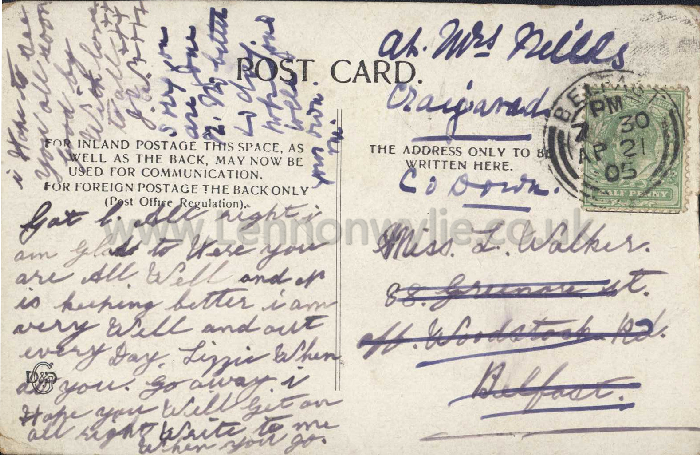 POST CARD.
FOR INLAND POSTAGE THIS SPACE, AS
WELL AS THE BACK, MAY NOW BE
USED FOR COMMUNICATION.
FOR FOREIGN POSTAGE THE BACK ONLY
(Post Office Regulation).
THE ADDRESS ONLY TO BE
WRITTEN HERE.
At. Mrs
Craigavad
Co Down.
Miss. L. Walker.
88. Greenore st.
off. Woodstock Rd.
Belfast.
BELFAST
PM
7 30
AP 21
05
HALF PENNY
Got l. All right i
am glad to Here you
are All. Well and
is keeping better i am
very Well and out
every Day. Lizzie When
do you. Go away. i
Hope you Well Get on
all right Write to me
When you go.
i Hope to see
you all soon
Good by
With love
to all
www.Lennonwylie.co.uk